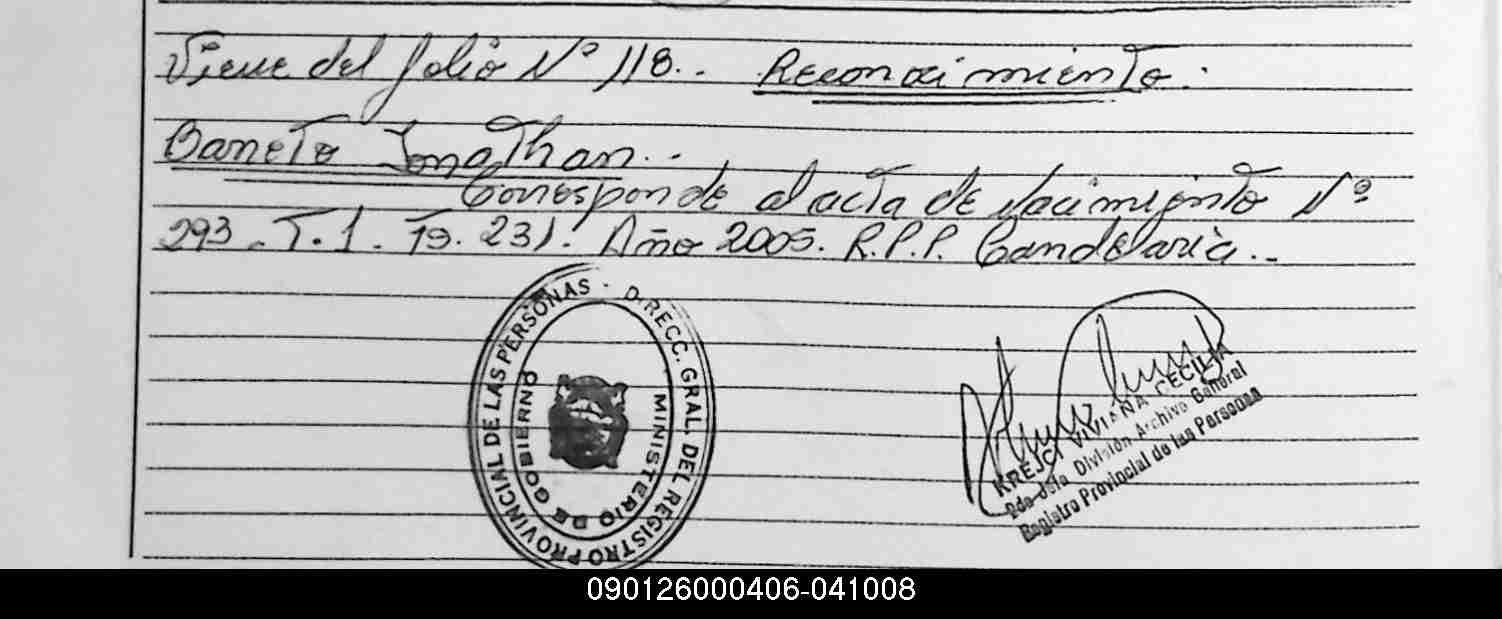 Viene del folio Nº 118.. Reconocimiento:
Baneto Jonathan..
Corresponde al acta de Nacimiento Nº
293. T.1. Fº. 231. Año 2005. R.P.P. Candelaria..
DIRECC. GRAL. DEL REGISTRO PROVINCIAL DE LAS PERSONAS -
MINISTERIO DE GOBIERNO
KREJCI VIVIANA CECILIA
2da Jefa División Archivo General
Registro Provincial de las Personas
090126000406-041008